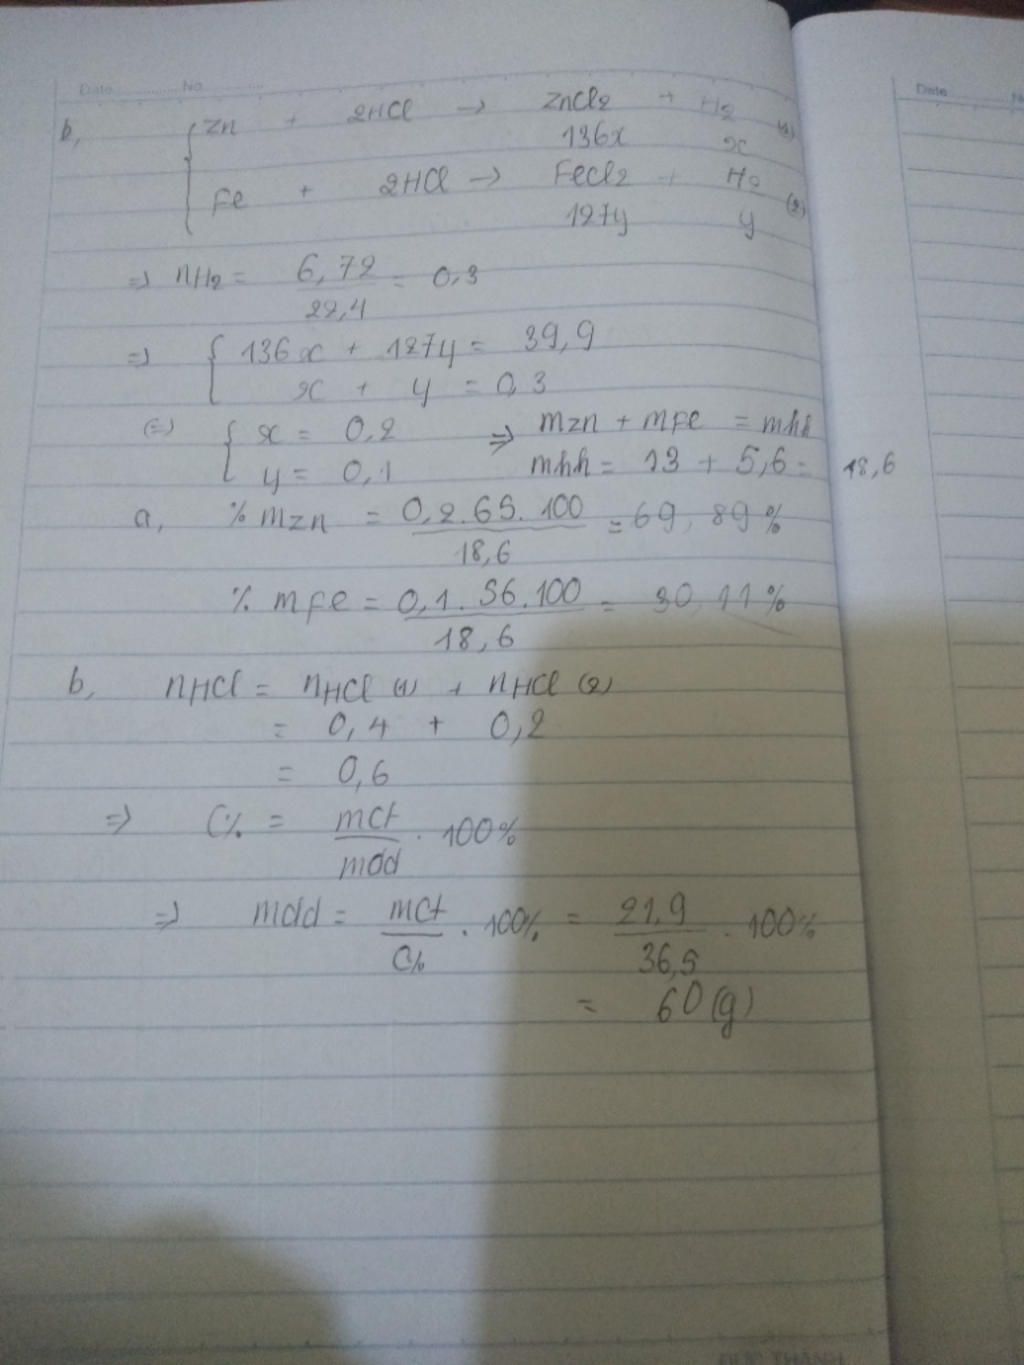 Date No
b, Zn + 2HCl → ZnCl2 + H2 (1)
136x x
Fe + 2HCl → FeCl2 + H2 (2)
127y y
=> nH2 = 6,72 / 22,4 = 0,3
=> { 136x + 127y = 39,9
x + y = 0,3
(=) { x = 0,2 => mZn + mFe = mhh
y = 0,1 mhh = 13 + 5,6 = 18,6
a, % mZn = 0,2.65.100 / 18,6 = 69,89%
% mFe = 0,1.56.100 / 18,6 = 30,11%
b, nHCl = nHCl (1) + nHCl (2)
= 0,4 + 0,2
= 0,6
=> C% = mct / mdd . 100%
=> mdd = mct / C% . 100% = 21,9 / 36,5 . 100%
= 60 (g)
Date